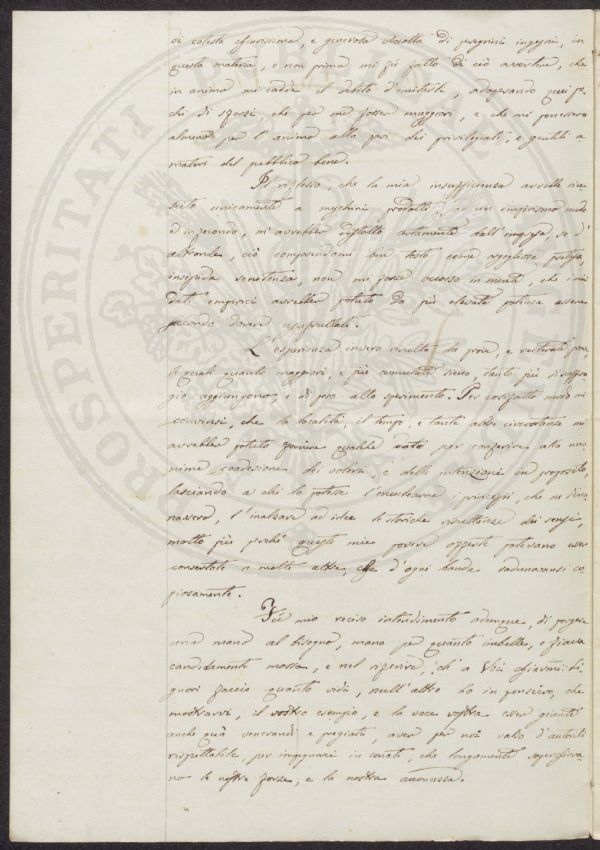 di codesta chiarissima, e generosa accolta di peregrini ingegni, in
questa materia, e non prima mi fu fatto di ciò avvertire, che
in animo mi cadde il debito d'imitarle, adoperando quei po-
chi di sforzi, che per me fosser maggiori, e che mi ponessero
almeno per l'animo alla pari dei privilegiati, e gentili a-
matori del pubblico bene.
Il riflesso, che la mia insufficienza avrebbe
unicamente a meschini prodotti, ad un empirismo nudo
ed infecondo, m'avrebbe distolto certamente dall'impresa, se d'
altronde, ciò comprendomi ben tosto come orgogliosa pretesa,
insipida, non mi fosse occorso in mente, che i miei
dati empirici avrebber potuto da più elevate potenze essere
secondo dovere.
L'esperienza invero risulta da prove, e verterali prove,
le quali quanto maggiori, e più cumulate sieno, tanto più di suffra-
gio aggiungono, e di peso allo sperimento. Per cosifatto modo mi
convinsi, che la località, il tempo, e tante altre circostanze mi
avrebber potuto fornire qualche dato per conferire alla una-
nime coadesione dei voleri, e delle intenzioni in proposito,
lasciando a chi lo potesse l'inventarne i principii, che ne
nassero, l'inalzare ad idee le storiche risultanze dei sensi,
molto più perchè queste mie povere offerte potevano esser
consertate a molte altre, che d'ogni banda radunaransi co-
piosamente.
Fu mio reciso intendimento adunque, di porgere
una mano al bisogno, mano per quanto imbelle, e fiacca
candidamente mossa, e nel riferire, ch'a Voi chiarmi: Si-
gnori faccio quanto vidi, null'altro ho in pensiero, che
mostrarvi, il vostro esempio, e la voce vostra esser giunti
anche quà venerandi e pregiati, aver per noi valso d'autorità
rispettabile, per impegnarci in conati, che largamente superava-
no le nostre forze, e la nostra accortezza.
PROSPERITATI PUBLICAE